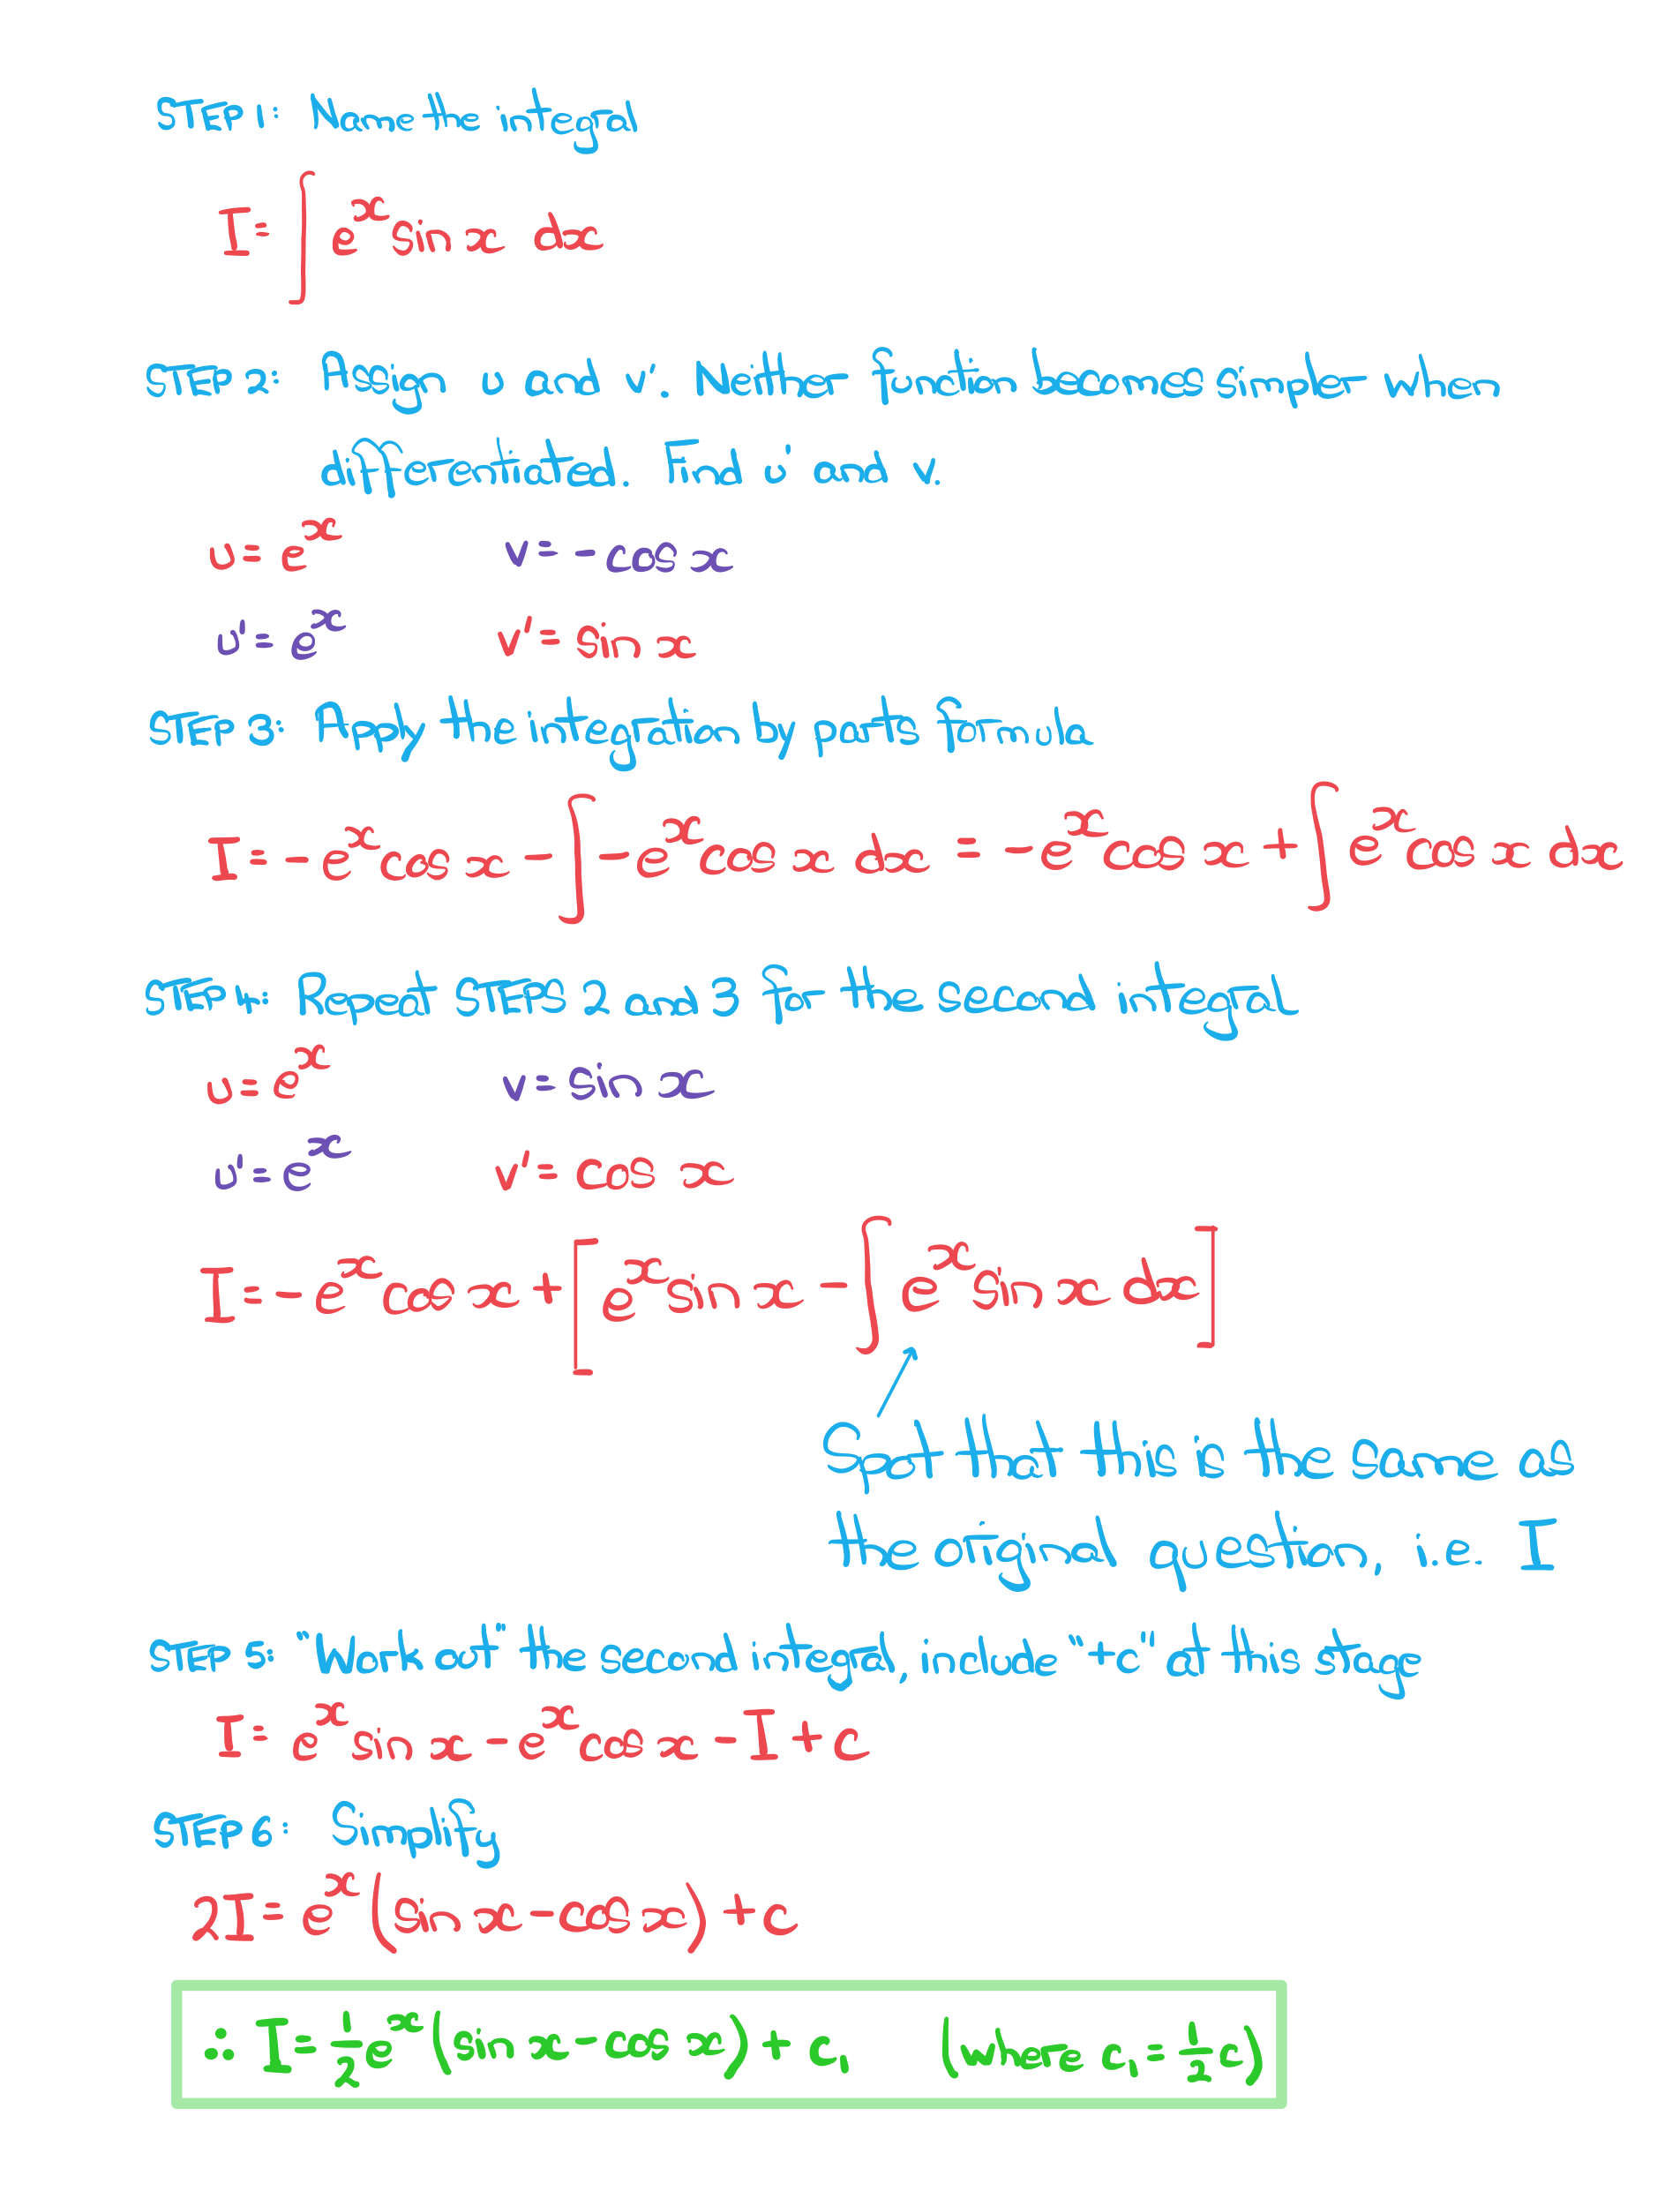 STEP 1: Name the integral
I = ∫ eˣ sin x dx
STEP 2: Assign u and v'. Neither function becomes simpler when
differentiated. Find u' and v.
u = eˣ v = -cos x
u' = eˣ v' = sin x
STEP 3: Apply the integration by parts formula
I = -eˣ cos x - ∫ -eˣ cos x dx = -eˣ cos x + ∫ eˣ cos x dx
STEP 4: Repeat STEPS 2 and 3 for the second integral
u = eˣ v = sin x
u' = eˣ v' = cos x
I = -eˣ cos x + [eˣ sin x - ∫ eˣ sin x dx]
Spot that this is the same as
the original question, i.e. I
STEP 5: "Work out" the second integral, include "+c" at this stage
I = eˣ sin x - eˣ cos x - I + c
STEP 6: Simplify
2I = eˣ (sin x - cos x) + c
∴ I = ½eˣ (sin x - cos x) + c₁ (where c₁ = ½c)